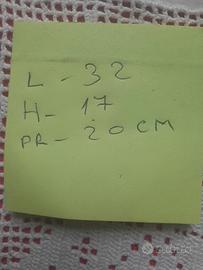 L - 32
H - 17
PR - 20 CM
subito